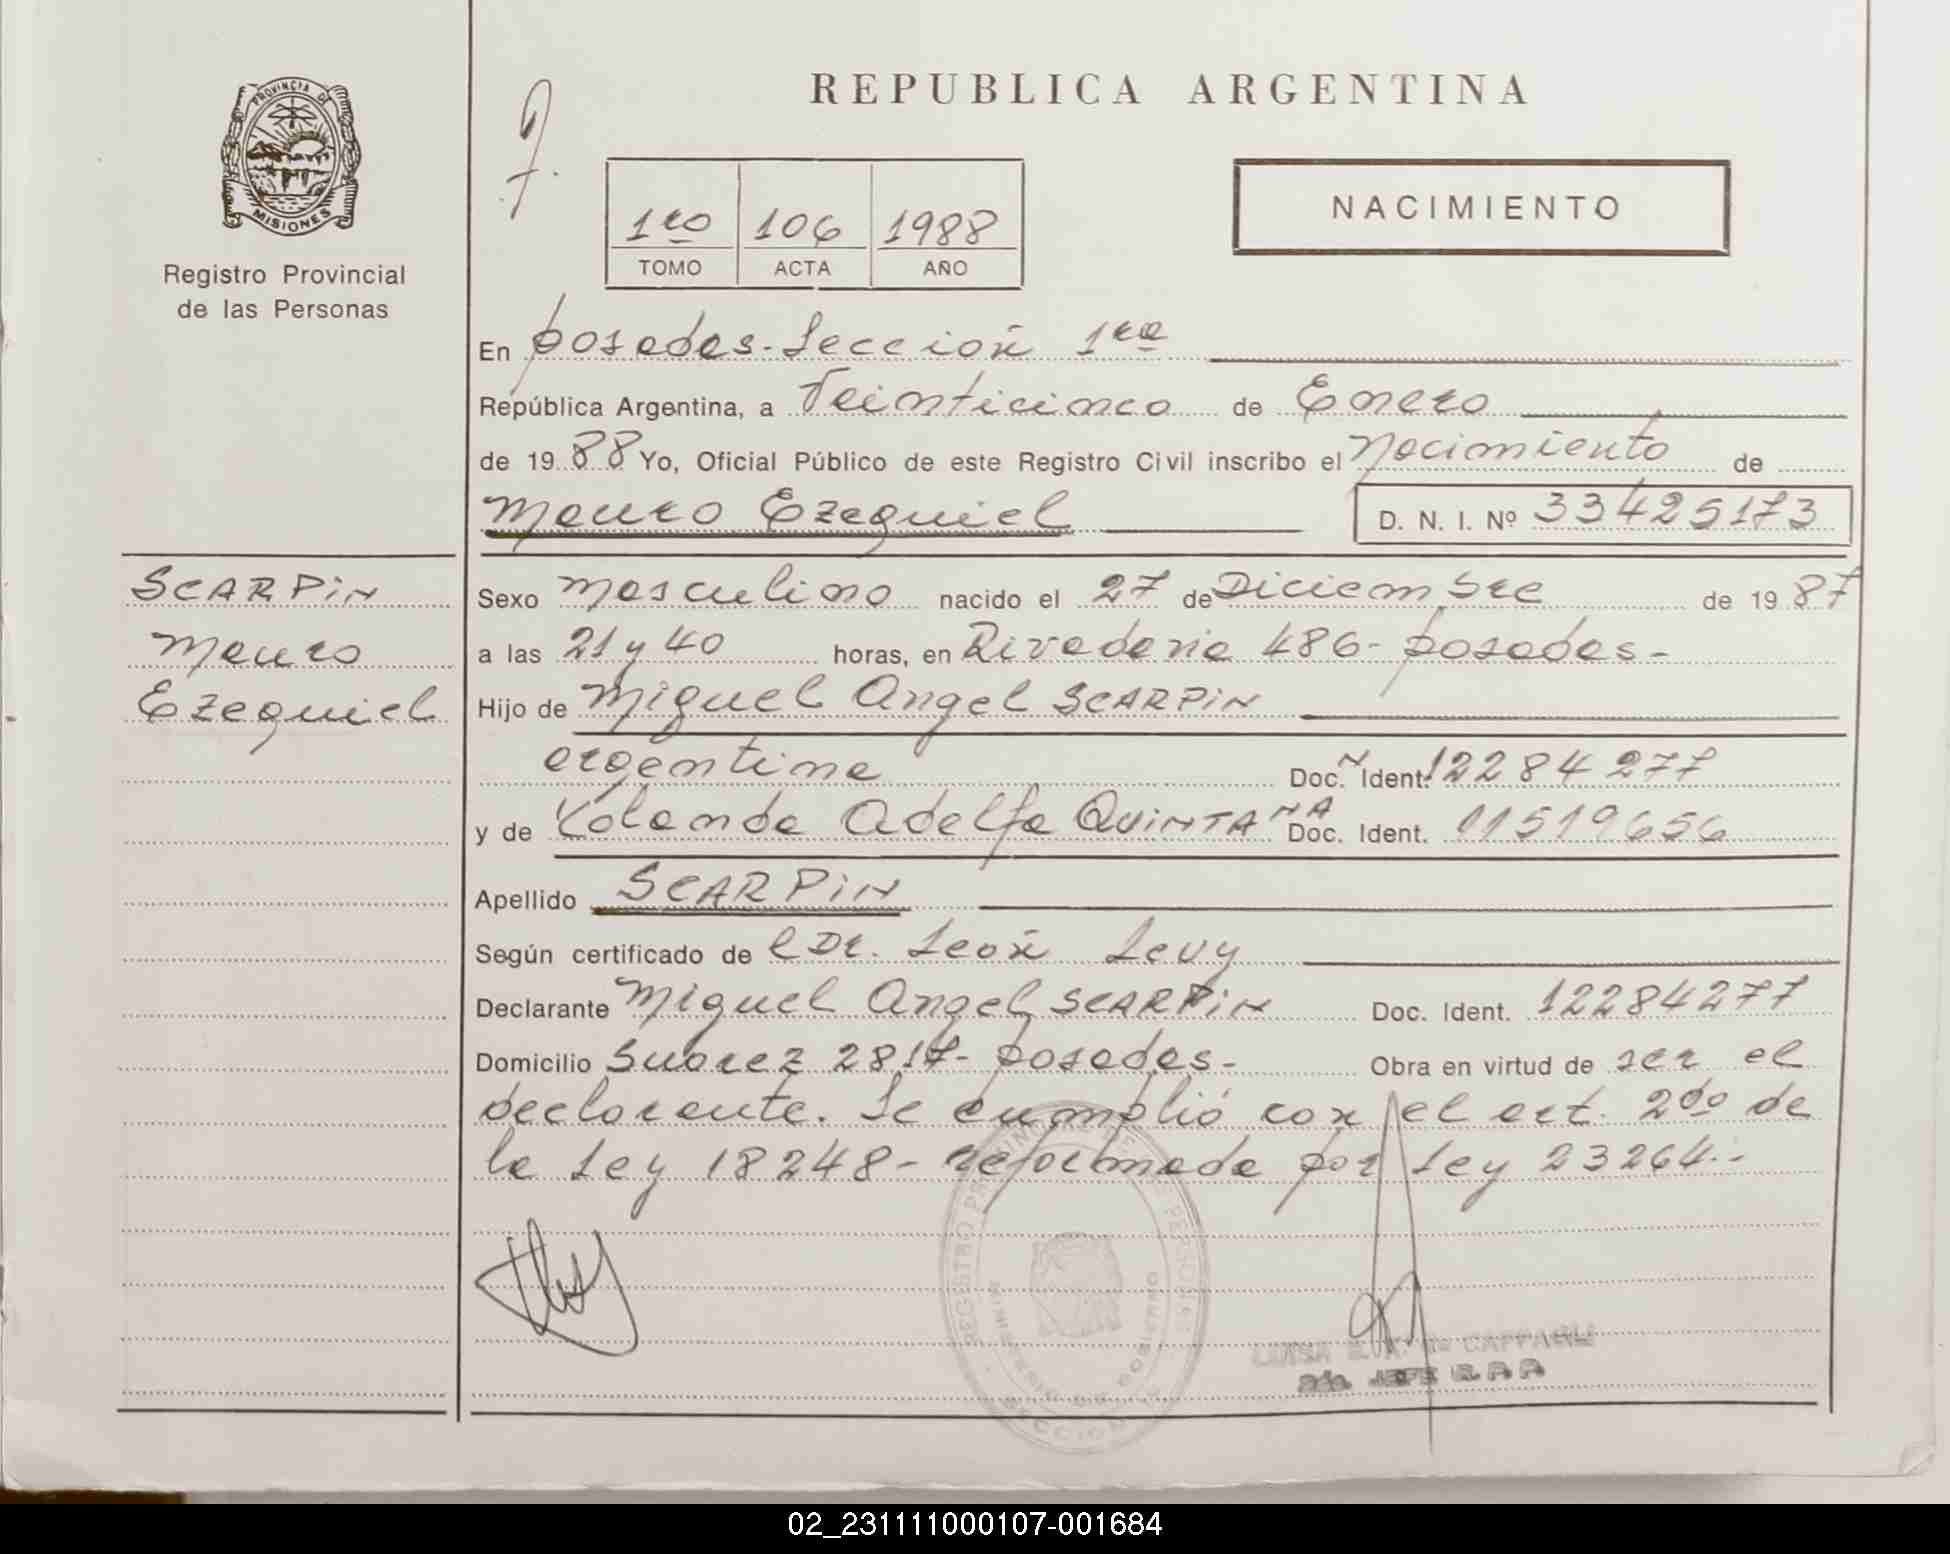 REPUBLICA ARGENTINA
PROVINCIA DE
MISIONES
Registro Provincial
de las Personas
1ro 106 1988
TOMO ACTA AÑO
NACIMIENTO
En Posadas-Sección 1ra
República Argentina, a Veinticinco de Enero
de 1988 Yo, Oficial Público de este Registro Civil inscribo el Nacimiento de
Mauro Ezequiel D. N. I. Nº 33425173
SCARPiN
Mauro
Ezequiel
Sexo Masculino nacido el 27 de Diciembre de 1987
a las 21 y 40 horas, en Rivadavia 486- Posadas-
Hijo de Miguel Angel SCARPiN
argentina Doc. Ident. 12284277
y de Yolanda Adelfa QUiNTANA Doc. Ident. 11519656
Apellido SCARPiN
Según certificado de l Dr. León Levy
Declarante Miguel Angel SCARPiN Doc. Ident. 12284277
Domicilio Suarez 2817- Posadas- Obra en virtud de ser el
declarante. Se cumplió con el art. 2do de
la Ley 18248- reformada por Ley 23264.-
REGISTRO PROVINCIAL DE LAS PERSONAS
MINISTERIO DE GOBIERNO
SECCION
LUISA
JEFE
02_231111000107-001684